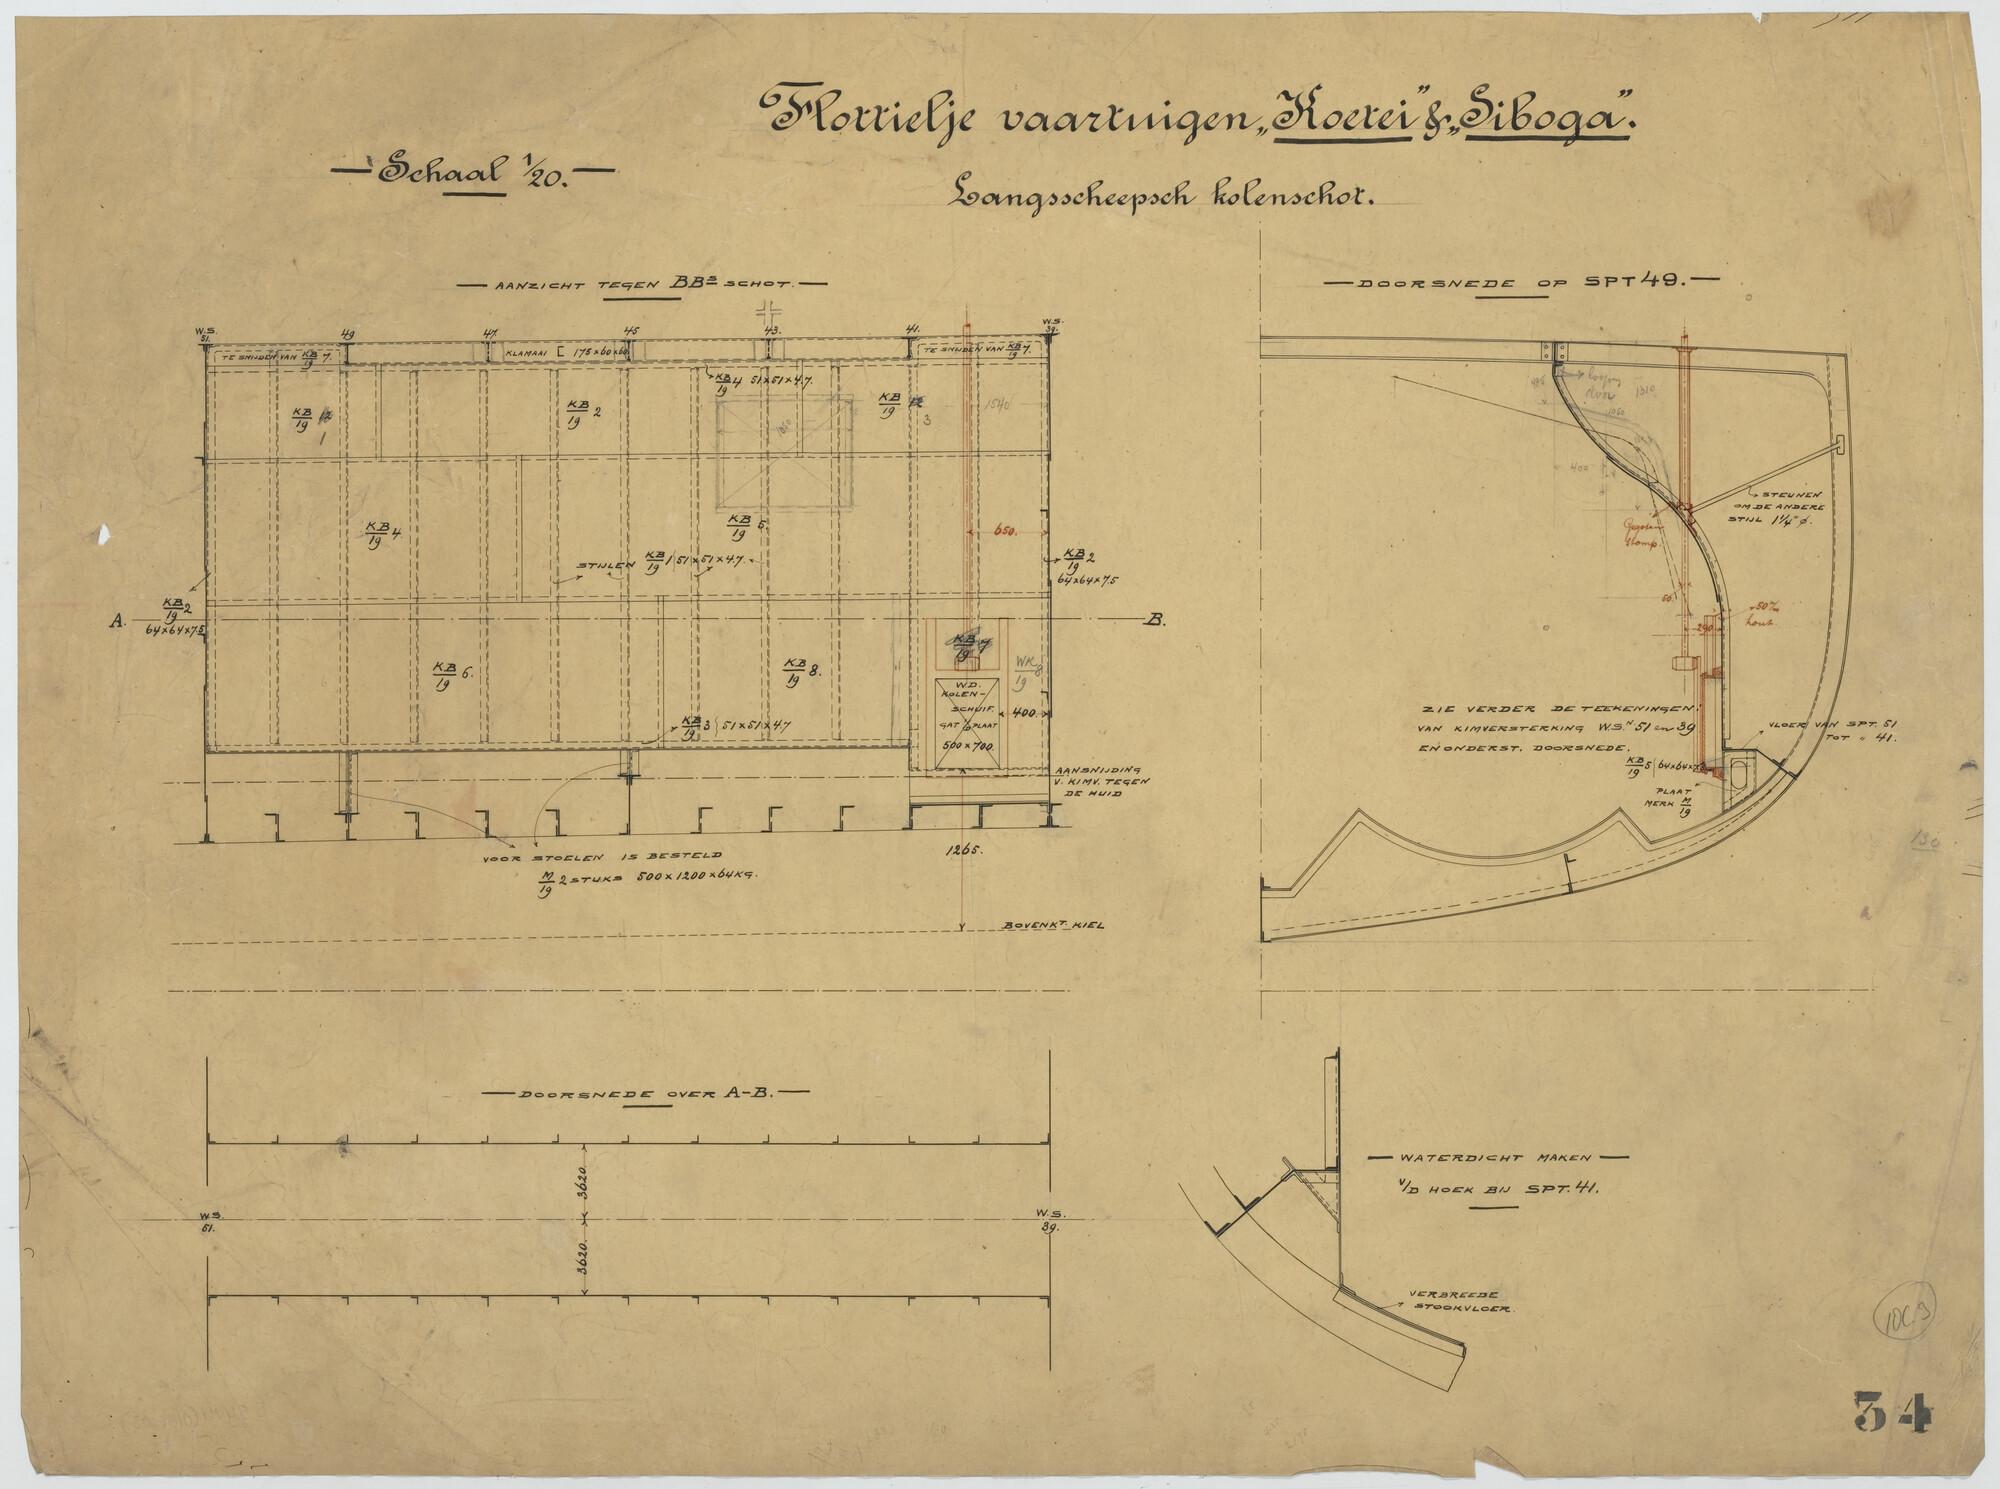 Flottielje vaartuigen „Koetei" & „Siboga".
— Schaal 1/20. —
Langsscheepsch kolenschot.
— AANZICHT TEGEN BBS SCHOT. —
— DOORSNEDE OP SPT 49. —
W.S. 51.
49
47.
45
43.
41.
W.S. 39.
TE SNIJDEN VAN KB/19 7.
KLAMAAI [ 175×60×60
TE SNIJDEN VAN KB/19 7.
KB/19 4 51×51×4.7.
KB/19 1
KB/19 2
KB/19 3
1540
1310
400
KB/19 4
KB/19 5.
650.
STIJLEN KB/19 1 51×51×4.7.
KB/19 2
64×64×7.5
KB/19 2
64×64×7.5
A.
B.
KB/19 7
KB/19 6.
KB/19 8.
WK/19 8
W.D.
KOLEN-
SCHUIF.
GAT I/D PLAAT
500×700.
400.
KB/19 3 51×51×4.7
AANSNIJDING
V. KIMV. TEGEN
DE HUID
VOOR STOELEN IS BESTELD
M/19 2 STUKS 500×1200×64KG.
1265.
BOVENKT. KIEL
STEUNEN
OM DE ANDERE
STIJL 1¼" ø.
Gegoten
stomp.
50.
290
50%
hout.
ZIE VERDER DE TEEKENINGEN:
VAN KIMVERSTERKING W.S.N 51 en 39
EN ONDERST. DOORSNEDE.
VLOER VAN SPT. 51
TOT " 41.
KB/19 5 64×64×7.5
PLAAT
MERK M/19
— DOORSNEDE OVER A-B. —
3620.
3620.
W.S.
51.
W.S.
39.
— WATERDICHT MAKEN —
V/D HOEK BIJ SPT. 41.
VERBREEDE
STOOKVLOER.
130
10C.3
34